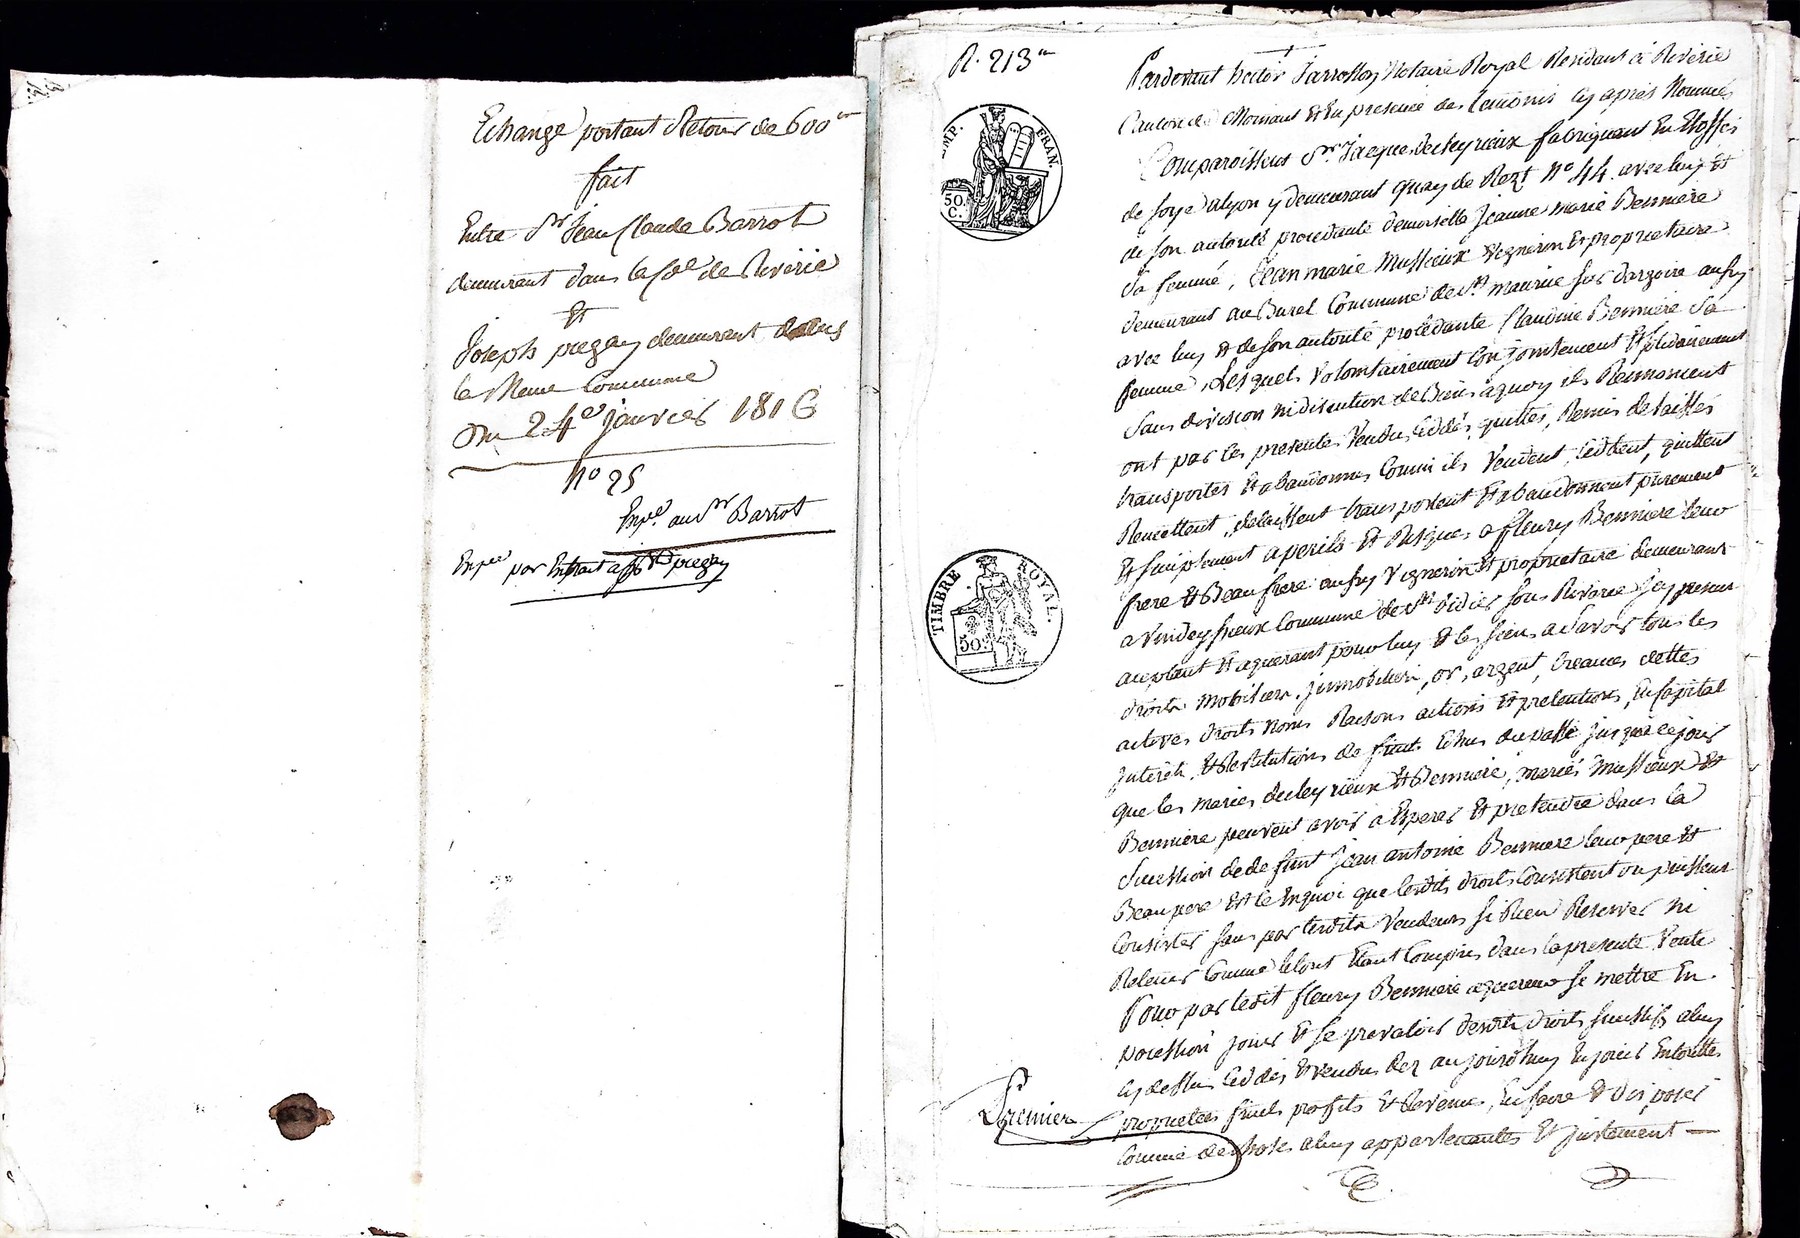 Echange portant Retour de 600
fait
Entre Sr Jean Claude Barrot
demeurant dans la de Riverie
Et
Joseph pregay demeurant dans
la Meme Commune
Du 24e janvier 1816
No 25
Expe. au Sr Barrot
Expe par Extrait pregay
R. 213
IMP. FRAN.
50.
C.
TIMBRE ROYAL.
50.
Pardevant hector Jarrosson Notaire Royal Residant à Riverie
Canton de Mornant Et En presence des temoins cy après Nommés
Comparoissent Sr. Jacque decleyrieux fabriquant En Etoffes
de soye alyon y demeurant quay de Retz no 44. avec luy Et
de son autorité procedante demoiselle Jeanne marie Bennière
Sa femme, Jean marie Mussieux Vigneron Et proprietaire
demeurant au Burel Commune de St. maurice sur dargoire aussy
avec luy Et de son autorité procedante Claudine Bennière Sa
femme, Lesquels Volontairement Conjointement Et solidairement
Sans division ni discution de Biens aquoy ils Renoncent
ont par les presentes Vendu, Cedés, quittés, Remis delaissés
transportés Et abandonnés Comme ils Vendent, Cedent, quittent
Remettent, delaissent transportent Et abandonnent purement
Et simplement aperils Et Risques a fleury Bennière leur
frere Et Beaufrere aussy Vigneron Et proprietaire demeurant
a Commune de St. didier sous Riverie Icy present
aceptant Et aquerant pour luy Et les siens a Savoir tous les
droits mobiliers, jmmobiliers, or, argent, Creances dettes
actives, droits Noms Raisons actions Et pretentions, En Capital
jnterets, Et Restitutions de fruits Echus du passé jusqua ce jour
que les mariés decleyrieux Et Bennière, mariés Mussieux Et
Bennière peuvent avoir a Esperer Et pretendre dans la
Succession de defunt Jean antoine Bennière leur pere Et
Beaupere Et le Enquoi que lesdits droits Consistent ou puissent
Consister sans par lesdits Vendeurs si Rien Reserver ni
Retenir Comme le tout Etant Compris dans la presente Vente
Pour par ledit fleury Bennière aquereur se mettre En
pocession jouir Et se prevaloir desdits droits sucessifs aluy
cy dessus Cedés Et vendus dez aujourdhuy En jouir Entoutte
proprietés fruits profits Et Revenus, En faire Et disposer
Comme de choses aluy appartenantes Et justement
Premier